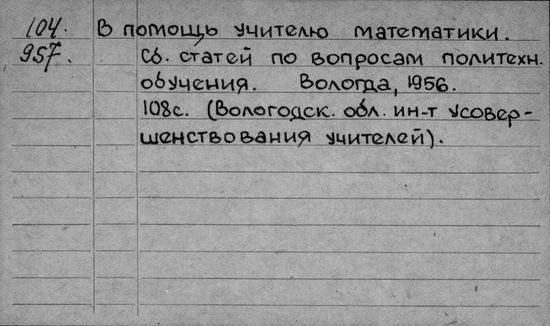 104. В помощь учителю математики.
957. Сб. статей по вопросам политехн.
обучения. Вологда, 1956.
108с. (Вологодск. обл. ин-т усовер-
шенствования учителей).